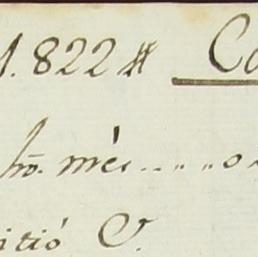 1.822 Co
ho. més.....o.
itió